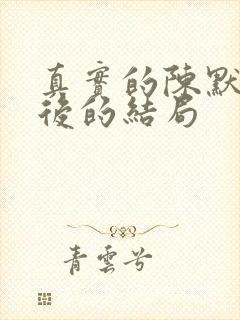 真實的陳默
後的結局
青雲兮